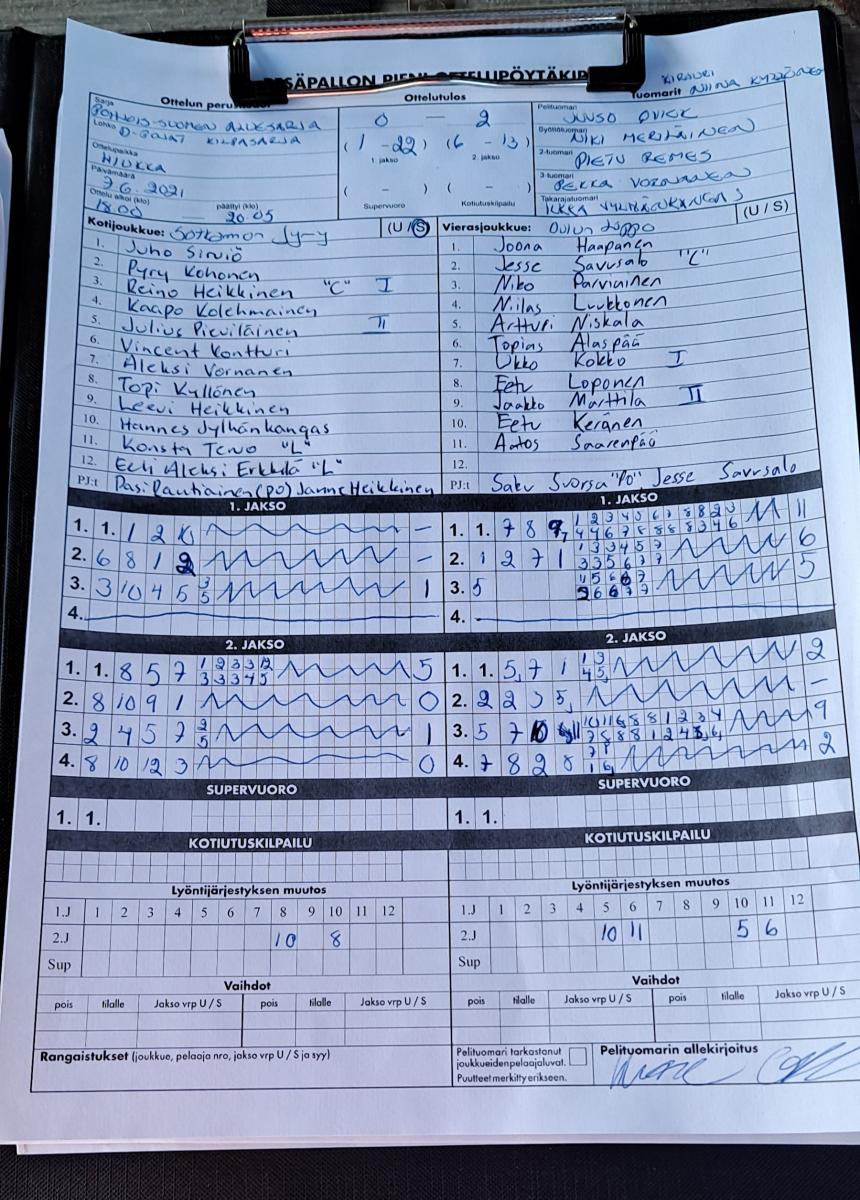 PESÄPALLON PIENI OTTELUPÖYTÄKIR
KIRJURI NIINA
Ottelun perustiedot
Ottelutulos
Tuomarit
Sarja POHJOIS-SUOMEN ALUESARJA
Lohko D-POJAT KILPASARJA
Ottelupaikka HIUKKA
Päivämäärä 7.6.2021
Ottelu alkoi (klo) 18.00 päättyi (klo) 20.05
0 — 2
( 1 - 22 ) ( 6 - 13 )
1. jakso 2. jakso
( - ) ( - )
Supervuoro Kotiutuskilpailu
Pelituomari JUUSO
Syöttötuomari NIKI MERILÄINEN
2-tuomari PIETU REMES
3-tuomari PEKKA VORNANEN
Takarajatuomari ILKKA
Kotijoukkue: Sotkamon Jy-y (U / S)
1. Juho Sirviö
2. Pyry Kohonen
3. Reino Heikkinen "C" I
4. Kaapo Kolehmainen
5. Julius Pieviläinen II
6. Vincent Kontturi
7. Aleksi Vornanen
8. Topi Kyllönen
9. Leevi Heikkinen
10. Hannes Jylhänkangas
11. Konsta Tervo "L"
12. Eeli Aleksi Erkkilä "L"
PJ:t Pasi Rautiainen (PO) Janne Heikkinen
Vierasjoukkue: Oulun Lippo (U / S)
1. Joona Haapanen
2. Jesse Savusalo "C"
3. Niko Parviainen
4. Niilas Luukkonen
5. Artturi Niskala
6. Topias Alaspää
7. Ukko Kokko I
8. Eetu Loponen
9. Jaakko Marttila II
10. Eetu Keränen
11. Aatos Saarenpää
12.
PJ:t Saku Svorsa "PO", Jesse Savusalo
1. JAKSO
1. 1. 1 2 –
2. 6 8 1 2 –
3. 3 10 4 5 3 5 1
4.
2. JAKSO
1. 1. 8 5 7 1 2 3 3 12 5
3 3 3 4 5
2. 8 10 9 1 0
3. 2 4 5 7 2 5 1
4. 8 10 12 3 0
SUPERVUORO
1. 1.
KOTIUTUSKILPAILU
1. JAKSO
1. 1. 7 8 9, 11
2. 1 2 7 1 6
3. 5 5
4.
2. JAKSO
1. 1. 5, 7 1 1 3 2
4 5
2. 2 2 5, –
3. 5 7 10 9
4. 7 8 2 8 2
SUPERVUORO
1. 1.
KOTIUTUSKILPAILU
Lyöntijärjestyksen muutos
1.J 1 2 3 4 5 6 7 8 9 10 11 12
2.J 10 8
Sup
Vaihdot
pois tilalle Jakso vrp U / S pois tilalle Jakso vrp U / S
Lyöntijärjestyksen muutos
1.J 1 2 3 4 5 6 7 8 9 10 11 12
2.J 10 11 5 6
Sup
Vaihdot
pois tilalle Jakso vrp U / S pois tilalle Jakso vrp U / S
Rangaistukset (joukkue, pelaaja nro, jakso vrp U / S ja syy)
Pelituomari tarkastanut
joukkueiden pelaajaluvat.
Puutteet merkitty erikseen.
Pelituomarin allekirjoitus